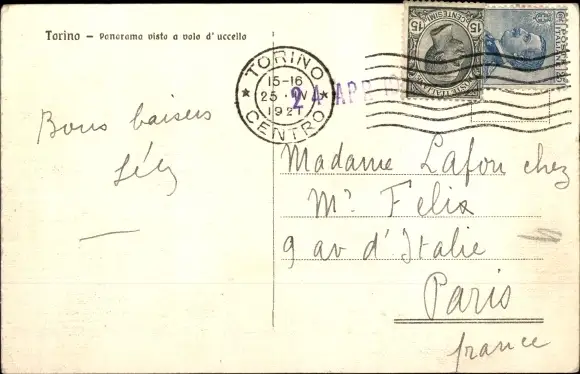 Torino – Panorama visto a volo d'uccello
TORINO
15-16
25 · IV
1921
CENTRO
24 APR
15 CENTESIMI 15
Bons baisers
Madame Lafon chez
Mr Felix
9 av d'Italie
Paris
france